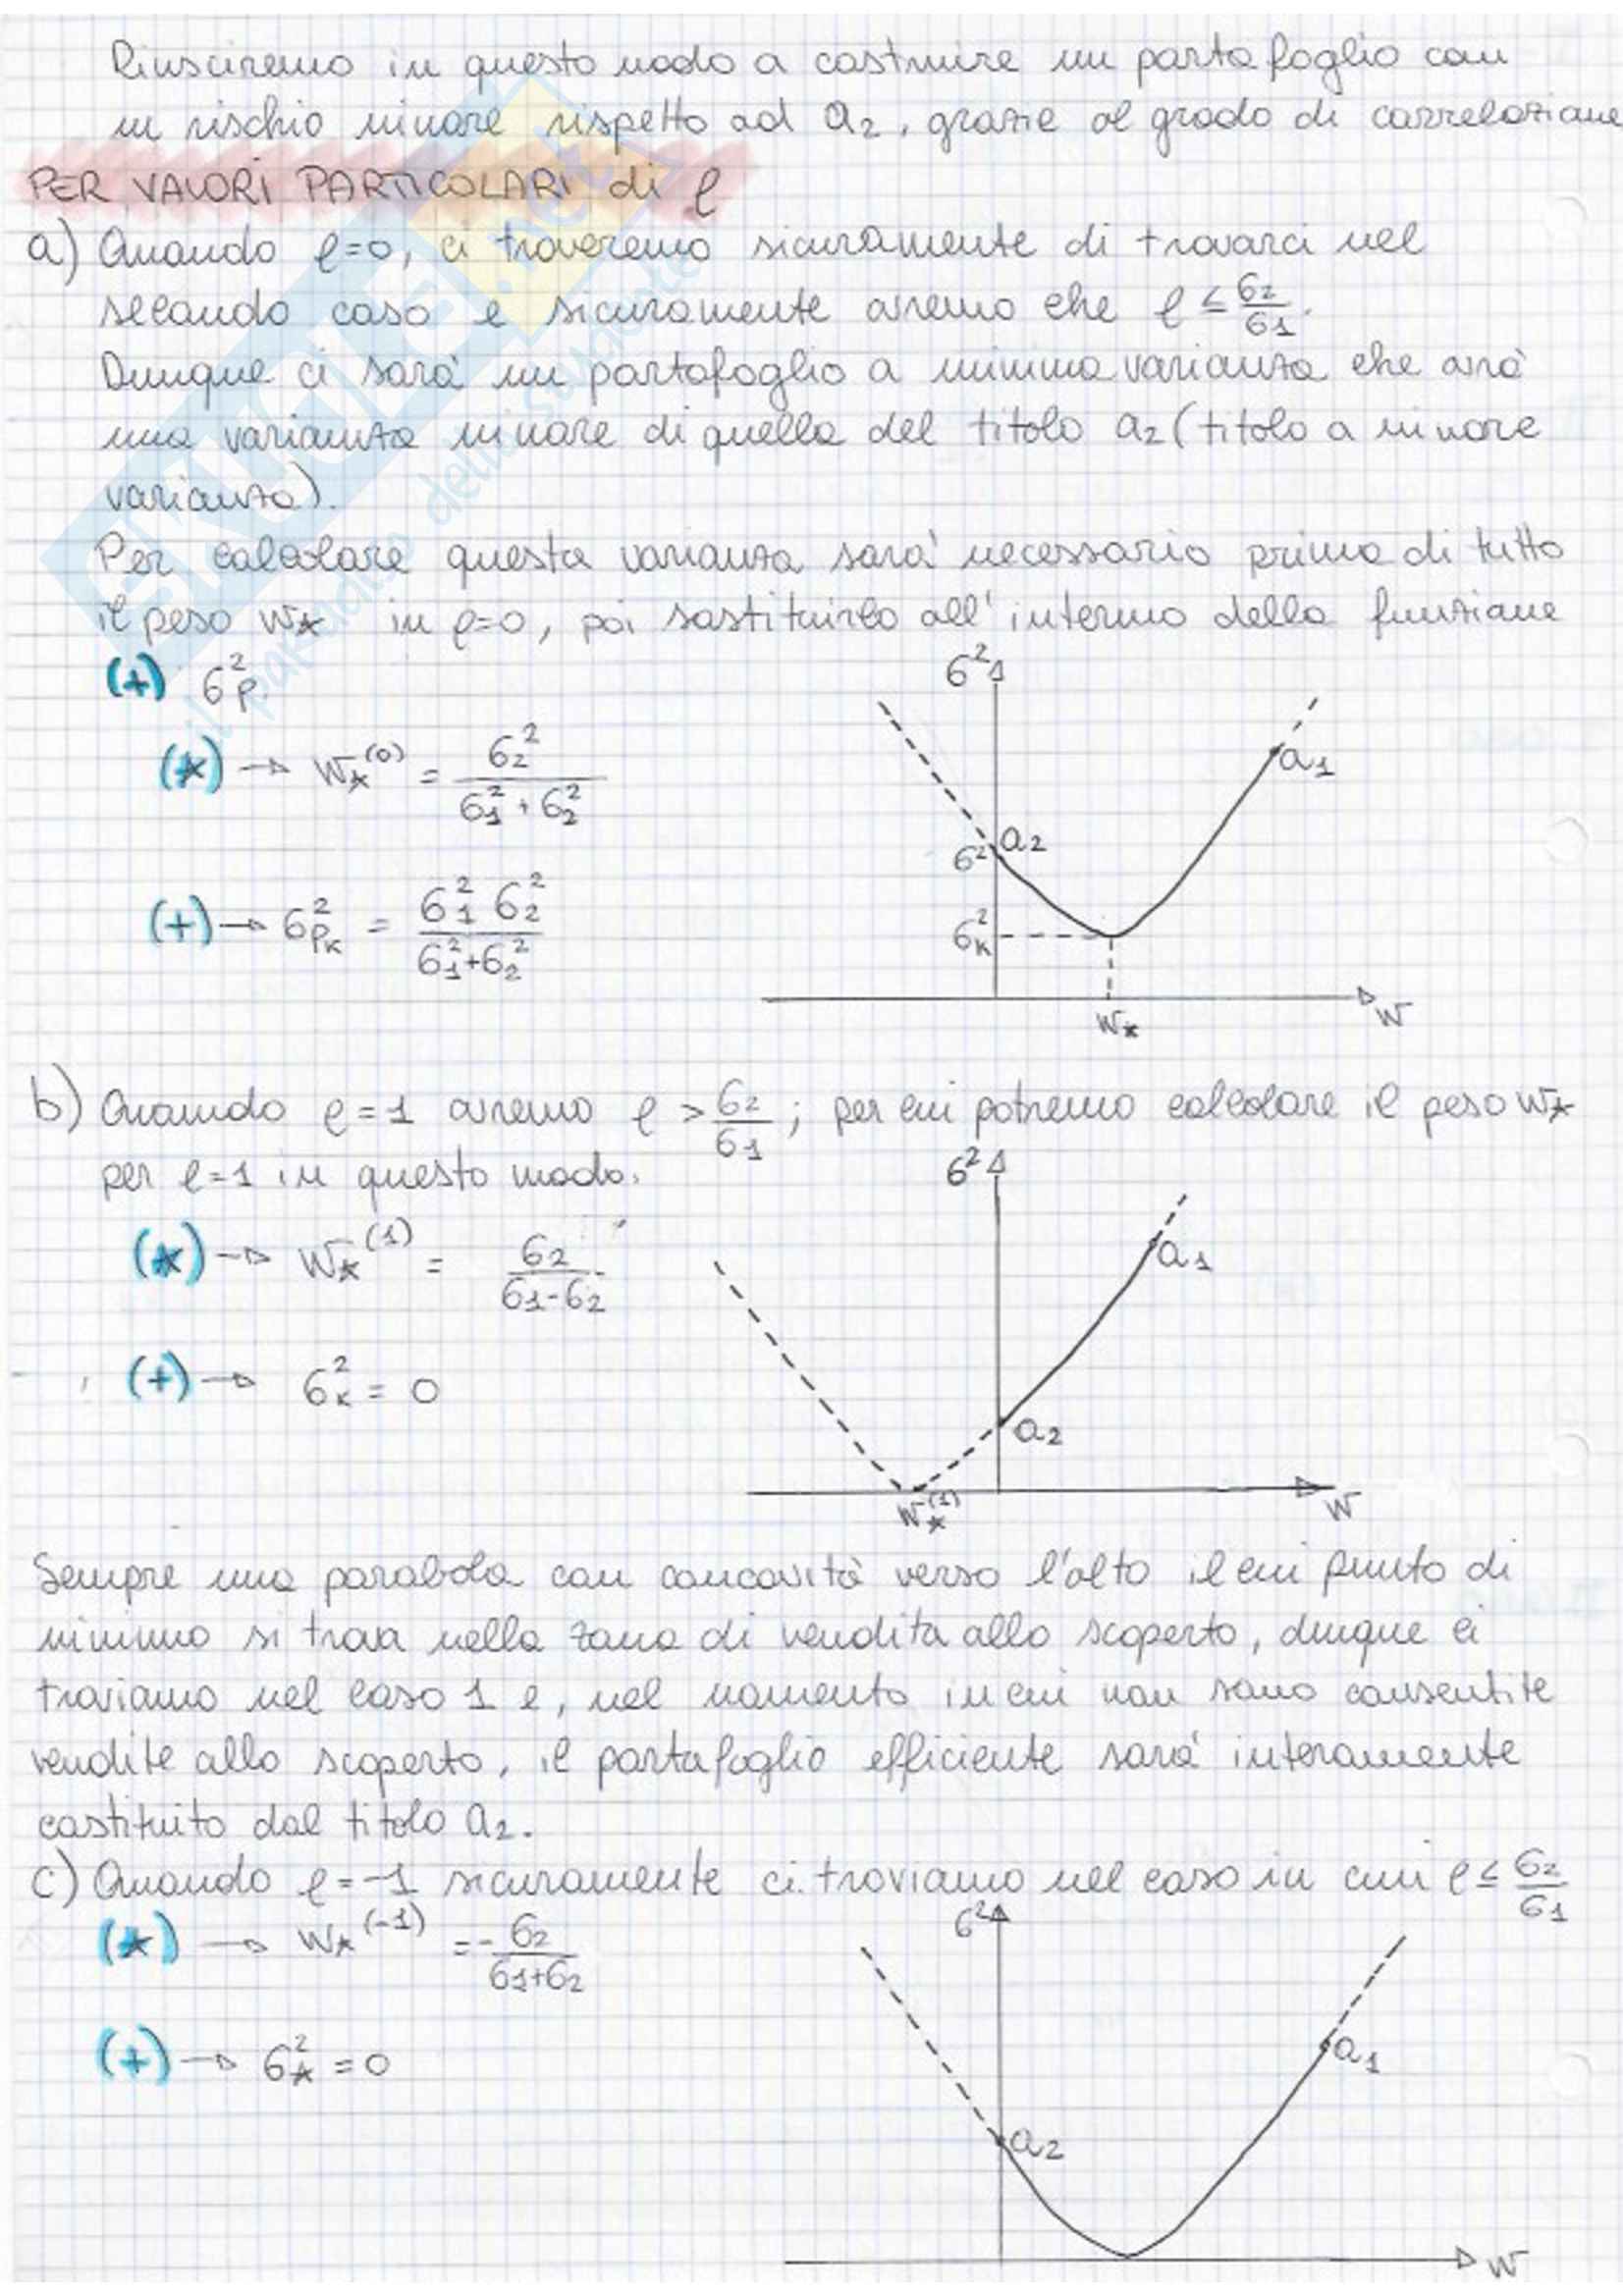 Riusciremo in questo modo a costruire un portafoglio con
un rischio minore rispetto ad a₂, grazie al grado di correlazione
PER VALORI PARTICOLARI di ρ
a) Quando ρ=0, ci troveremo sicuramente di trovarci nel
secondo caso e sicuramente avremo che ρ ≤ σ₂/σ₁.
Dunque ci sarà un portafoglio a minima varianza che avrà
una varianza minore di quella del titolo a₂ (titolo a minore
varianza).
Per calcolare questa varianza sarà necessario prima di tutto
il peso w★ in ρ=0, poi sostituirlo all'interno della funzione
(+) σ²p.
(★) → w★⁽⁰⁾ = σ₂² / (σ₁² + σ₂²)
(+) → σ²pK = σ₁² σ₂² / (σ₁²+σ₂²)
σ²
a₁
a₂
σ²
σ²K
w★
w
b) Quando ρ=1 avremo ρ > σ₂/σ₁ ; per cui potremo calcolare il peso w★
per ρ=1 in questo modo.
(★) → w★⁽¹⁾ = σ₂ / (σ₁-σ₂)
(+) → σ²K = 0
σ²
a₁
a₂
w★⁽¹⁾
w
Sempre una parabola con concavità verso l'alto il cui punto di
minimo si trova nella zona di vendita allo scoperto, dunque ci
troviamo nel caso 1 e, nel momento in cui non sono consentite
vendite allo scoperto, il portafoglio efficiente sarà interamente
costituito dal titolo a₂.
c) Quando ρ=-1 sicuramente ci troviamo nel caso in cui ρ ≤ σ₂/σ₁
(★) → w★⁽⁻¹⁾ = - σ₂ / (σ₁+σ₂)
(+) → σ²★ = 0
σ²
a₁
a₂
w
SKUOLA.net
il paradiso dello studente